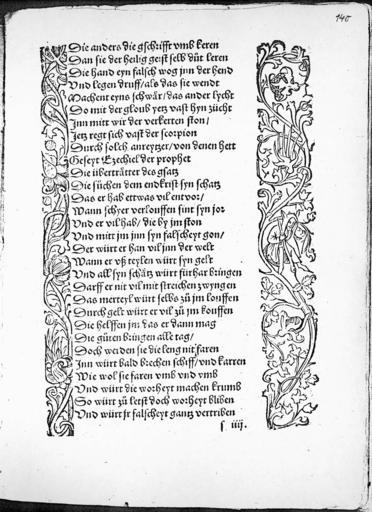 140
Die anders die gschrifft vmb keren
Dan sie der heilig geist selb důt leren
Die hand eyn falsch wog jnn der hend
Vnd legen druff/ als das sie wendt
Machent eyns schwär/ das ander lycht
Do mit der gloub yetz vast hyn zücht
Inn mitt wir der verkerten ston/
Jetz regt sich vast der scorpion
Durch solch anreytzer/ von denen hett
Geseyt Ezechiel der prophet
Die überträtter des gsatz
Die süchen dem endkrist syn schatz
Das er hab ettwas vil entvor/
Wann schyer verlouffen sint syn jor
Vnd er vil hab/ die by jm ston
Vnd mitt jm jnn syn falscheyt gon/
Der würt er han vil jnn der welt
Wann er vß teylen würt syn gelt
Vnd all syn schätz würt fürhar bringen
Darff er nit vil mit streichen zwyngen
Das merteyl würt selbs zů jm louffen
Durch gelt würt er vil zů jm kouffen
Die helffen jm das er dann mag
Die gůten bringen alle tag/
Doch werden sie die leng nit faren
Inn würt bald brechen schiff/ vnd karren
Wie wol sie faren vmb vnd vmb
Vnd würt die worheyt machen krumb
So würt zů letst doch worheyt bliben
Vnd würt jr falscheyt gantz vertriben
s iiij.